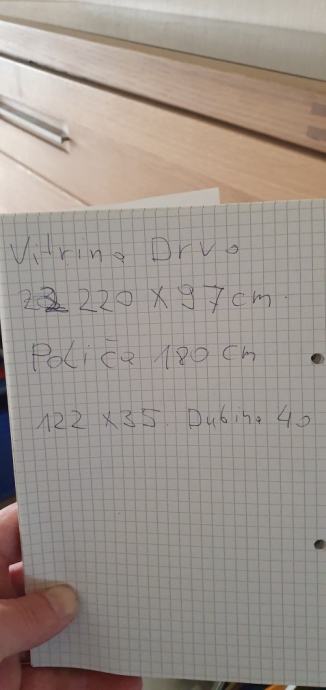 Vitrina Drvo
220 X 97 cm.
Poliča 180 cm
122 X 35. Dubina 40